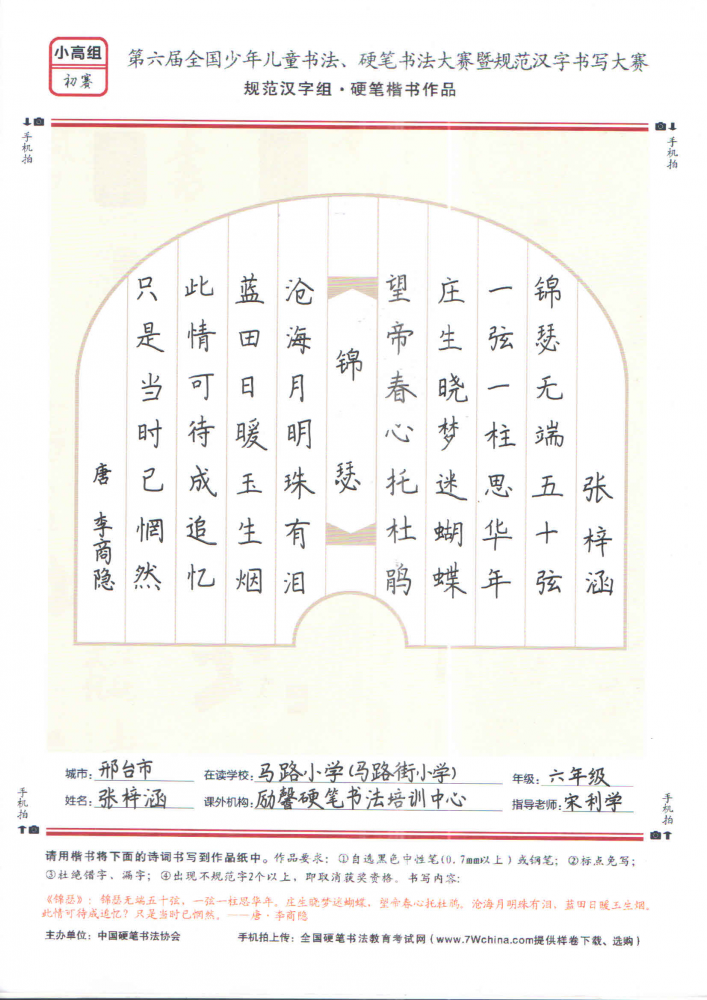 小高组
初赛
第六届全国少年儿童书法、硬笔书法大赛暨规范汉字书写大赛
规范汉字组·硬笔楷书作品
手机拍
手机拍
张梓涵
锦瑟无端五十弦
一弦一柱思华年
庄生晓梦迷蝴蝶
望帝春心托杜鹃
锦瑟
沧海月明珠有泪
蓝田日暖玉生烟
此情可待成追忆
只是当时已惘然
唐 李商隐
城市：邢台市 在读学校：马路小学(马路街小学) 年级：六年级
姓名：张梓涵 课外机构：励馨硬笔书法培训中心 指导老师：宋利学
手机拍
手机拍
请用楷书将下面的诗词书写到作品纸中。作品要求：①自选黑色中性笔(0.7mm以上)或钢笔；②标点免写；
③杜绝错字、漏字；④出现不规范字2个以上，即取消获奖资格。书写内容：
《锦瑟》：锦瑟无端五十弦，一弦一柱思华年。庄生晓梦迷蝴蝶，望帝春心托杜鹃。沧海月明珠有泪，蓝田日暖玉生烟。
此情可待成追忆？只是当时已惘然。——唐·李商隐
主办单位：中国硬笔书法协会 手机拍上传：全国硬笔书法教育考试网(www.7Wchina.com提供样卷下载、选购)